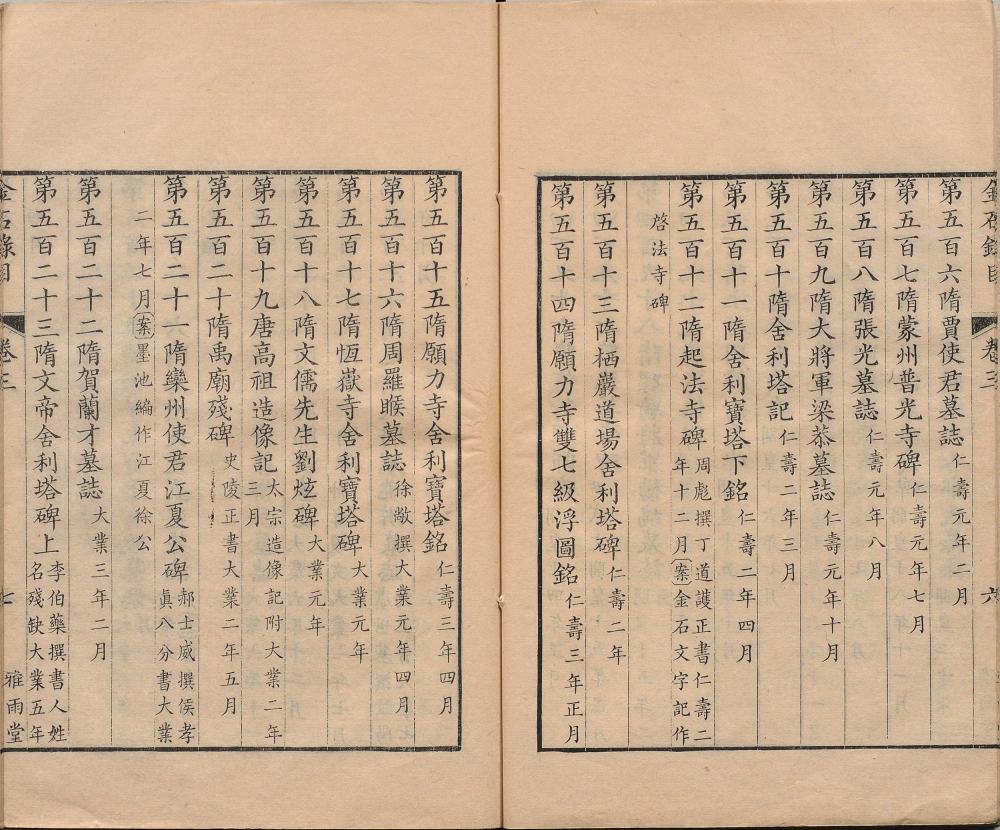 金石錄目 卷三 六
第五百六隋賈使君墓誌仁壽元年二月
第五百七隋蒙州普光寺碑仁壽元年七月
第五百八隋張光墓誌仁壽元年八月
第五百九隋大將軍梁恭墓誌仁壽元年十月
第五百十隋舍利塔記仁壽二年三月
第五百十一隋舍利寶塔下銘仁壽二年四月
第五百十二隋起法寺碑周彪撰丁道護正書仁壽二年十二月案金石文字記作
啓法寺碑
第五百十三隋栖巖道場舍利塔碑仁壽二年
第五百十四隋願力寺雙七級浮圖銘仁壽三年正月
第五百十五隋願力寺舍利寶塔銘仁壽三年四月
第五百十六隋周羅睺墓誌徐敞撰大業元年四月
第五百十七隋恆嶽寺舍利寶塔碑大業元年
第五百十八隋文儒先生劉炫碑大業元年
第五百十九唐高祖造像記太宗造像記附大業二年三月
第五百二十隋禹廟殘碑史陵正書大業二年五月
第五百二十一隋欒州使君江夏公碑郝士威撰侯孝眞八分書大業
二年七月案墨池編作江夏徐公
第五百二十二隋賀蘭才墓誌大業三年二月
第五百二十三隋文帝舍利塔碑上李伯藥撰書人姓名殘缺大業五年
金石錄目 卷三 七 雅雨堂